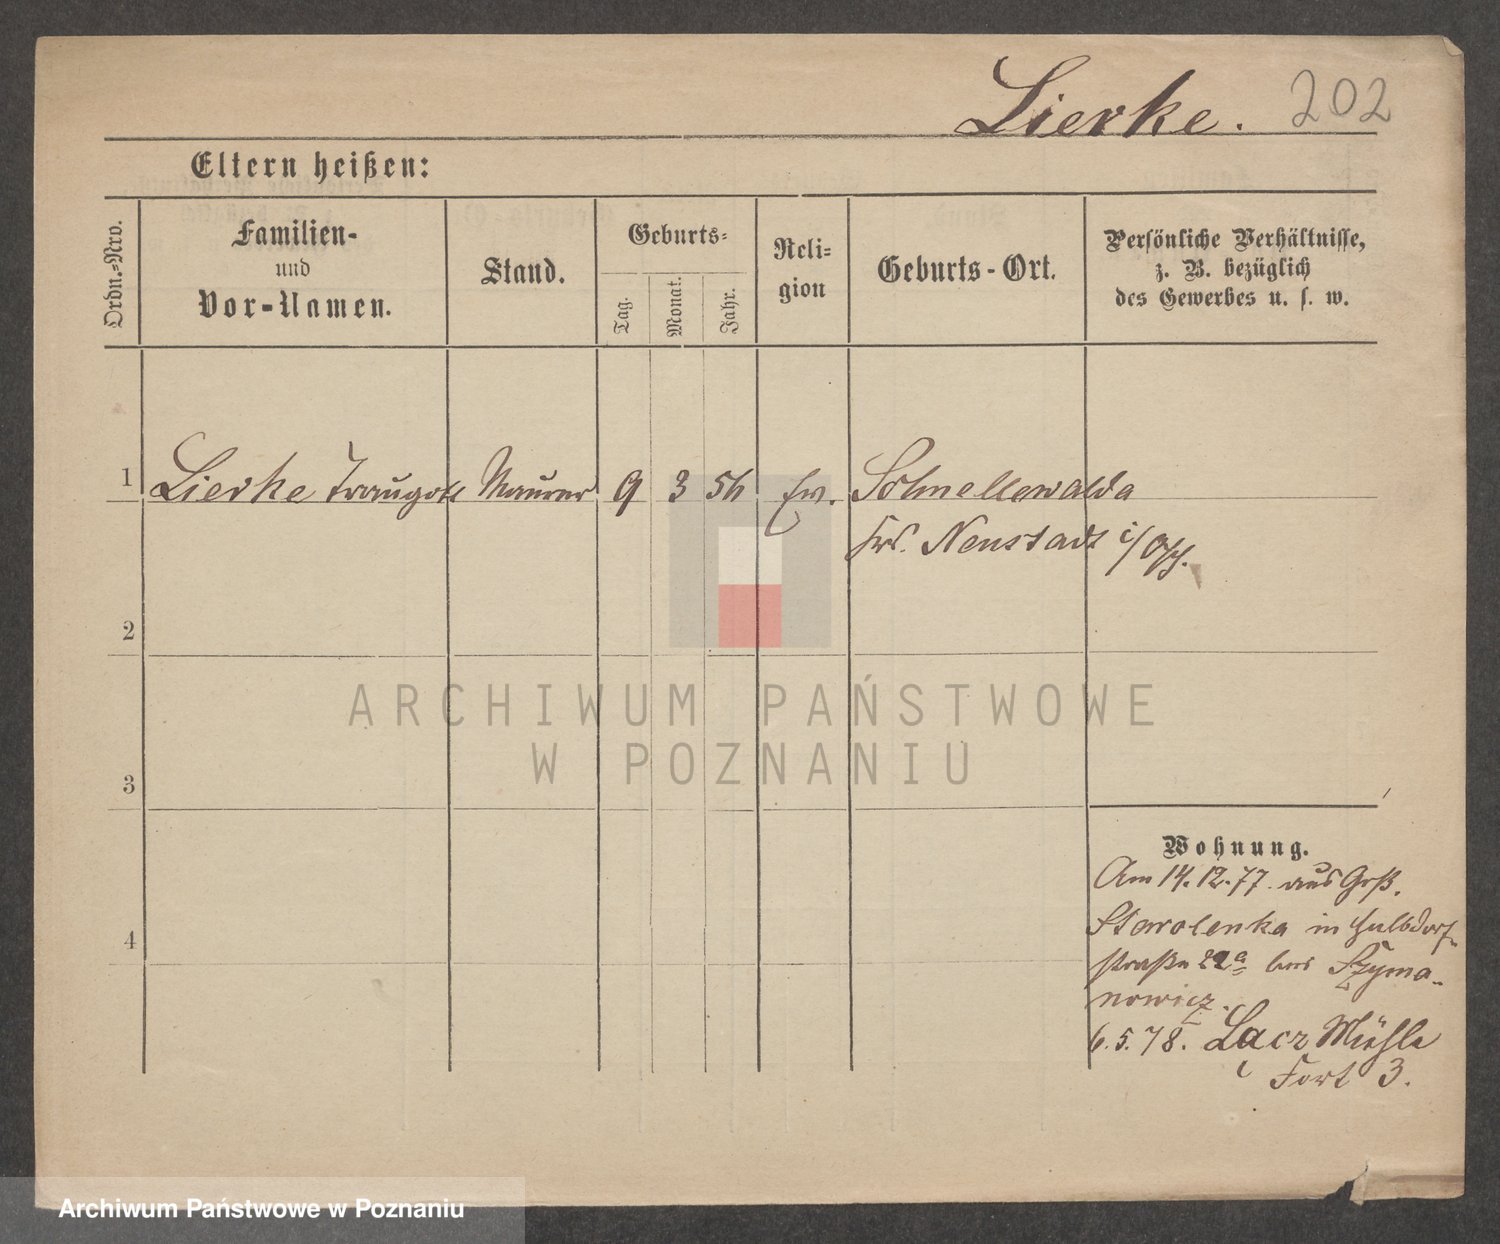 Lierke. 202
Eltern heißen:
Ordn.-Nro.
Familien-
und
Vor-Namen.
Stand.
Geburts-
Tag.
Monat.
Jahr.
Reli-
gion
Geburts-Ort.
Persönliche Verhältnisse,
z. B. bezüglich
des Gewerbes u. s. w.
1 Lierke Traugott Maurer 9 3 56 ev. Schnellewalde
Krs. Neustadt i/O/S.
2
3
4
Wohnung.
Am 14.12.77. aus Groß.
Starolenka in Halbdorf-
straße 22a bei Szyma-
nowicz.
6.5.78. Lacz Mühle
Fort 3.
ARCHIWUM PAŃSTWOWE
W POZNANIU
Archiwum Państwowe w Poznaniu